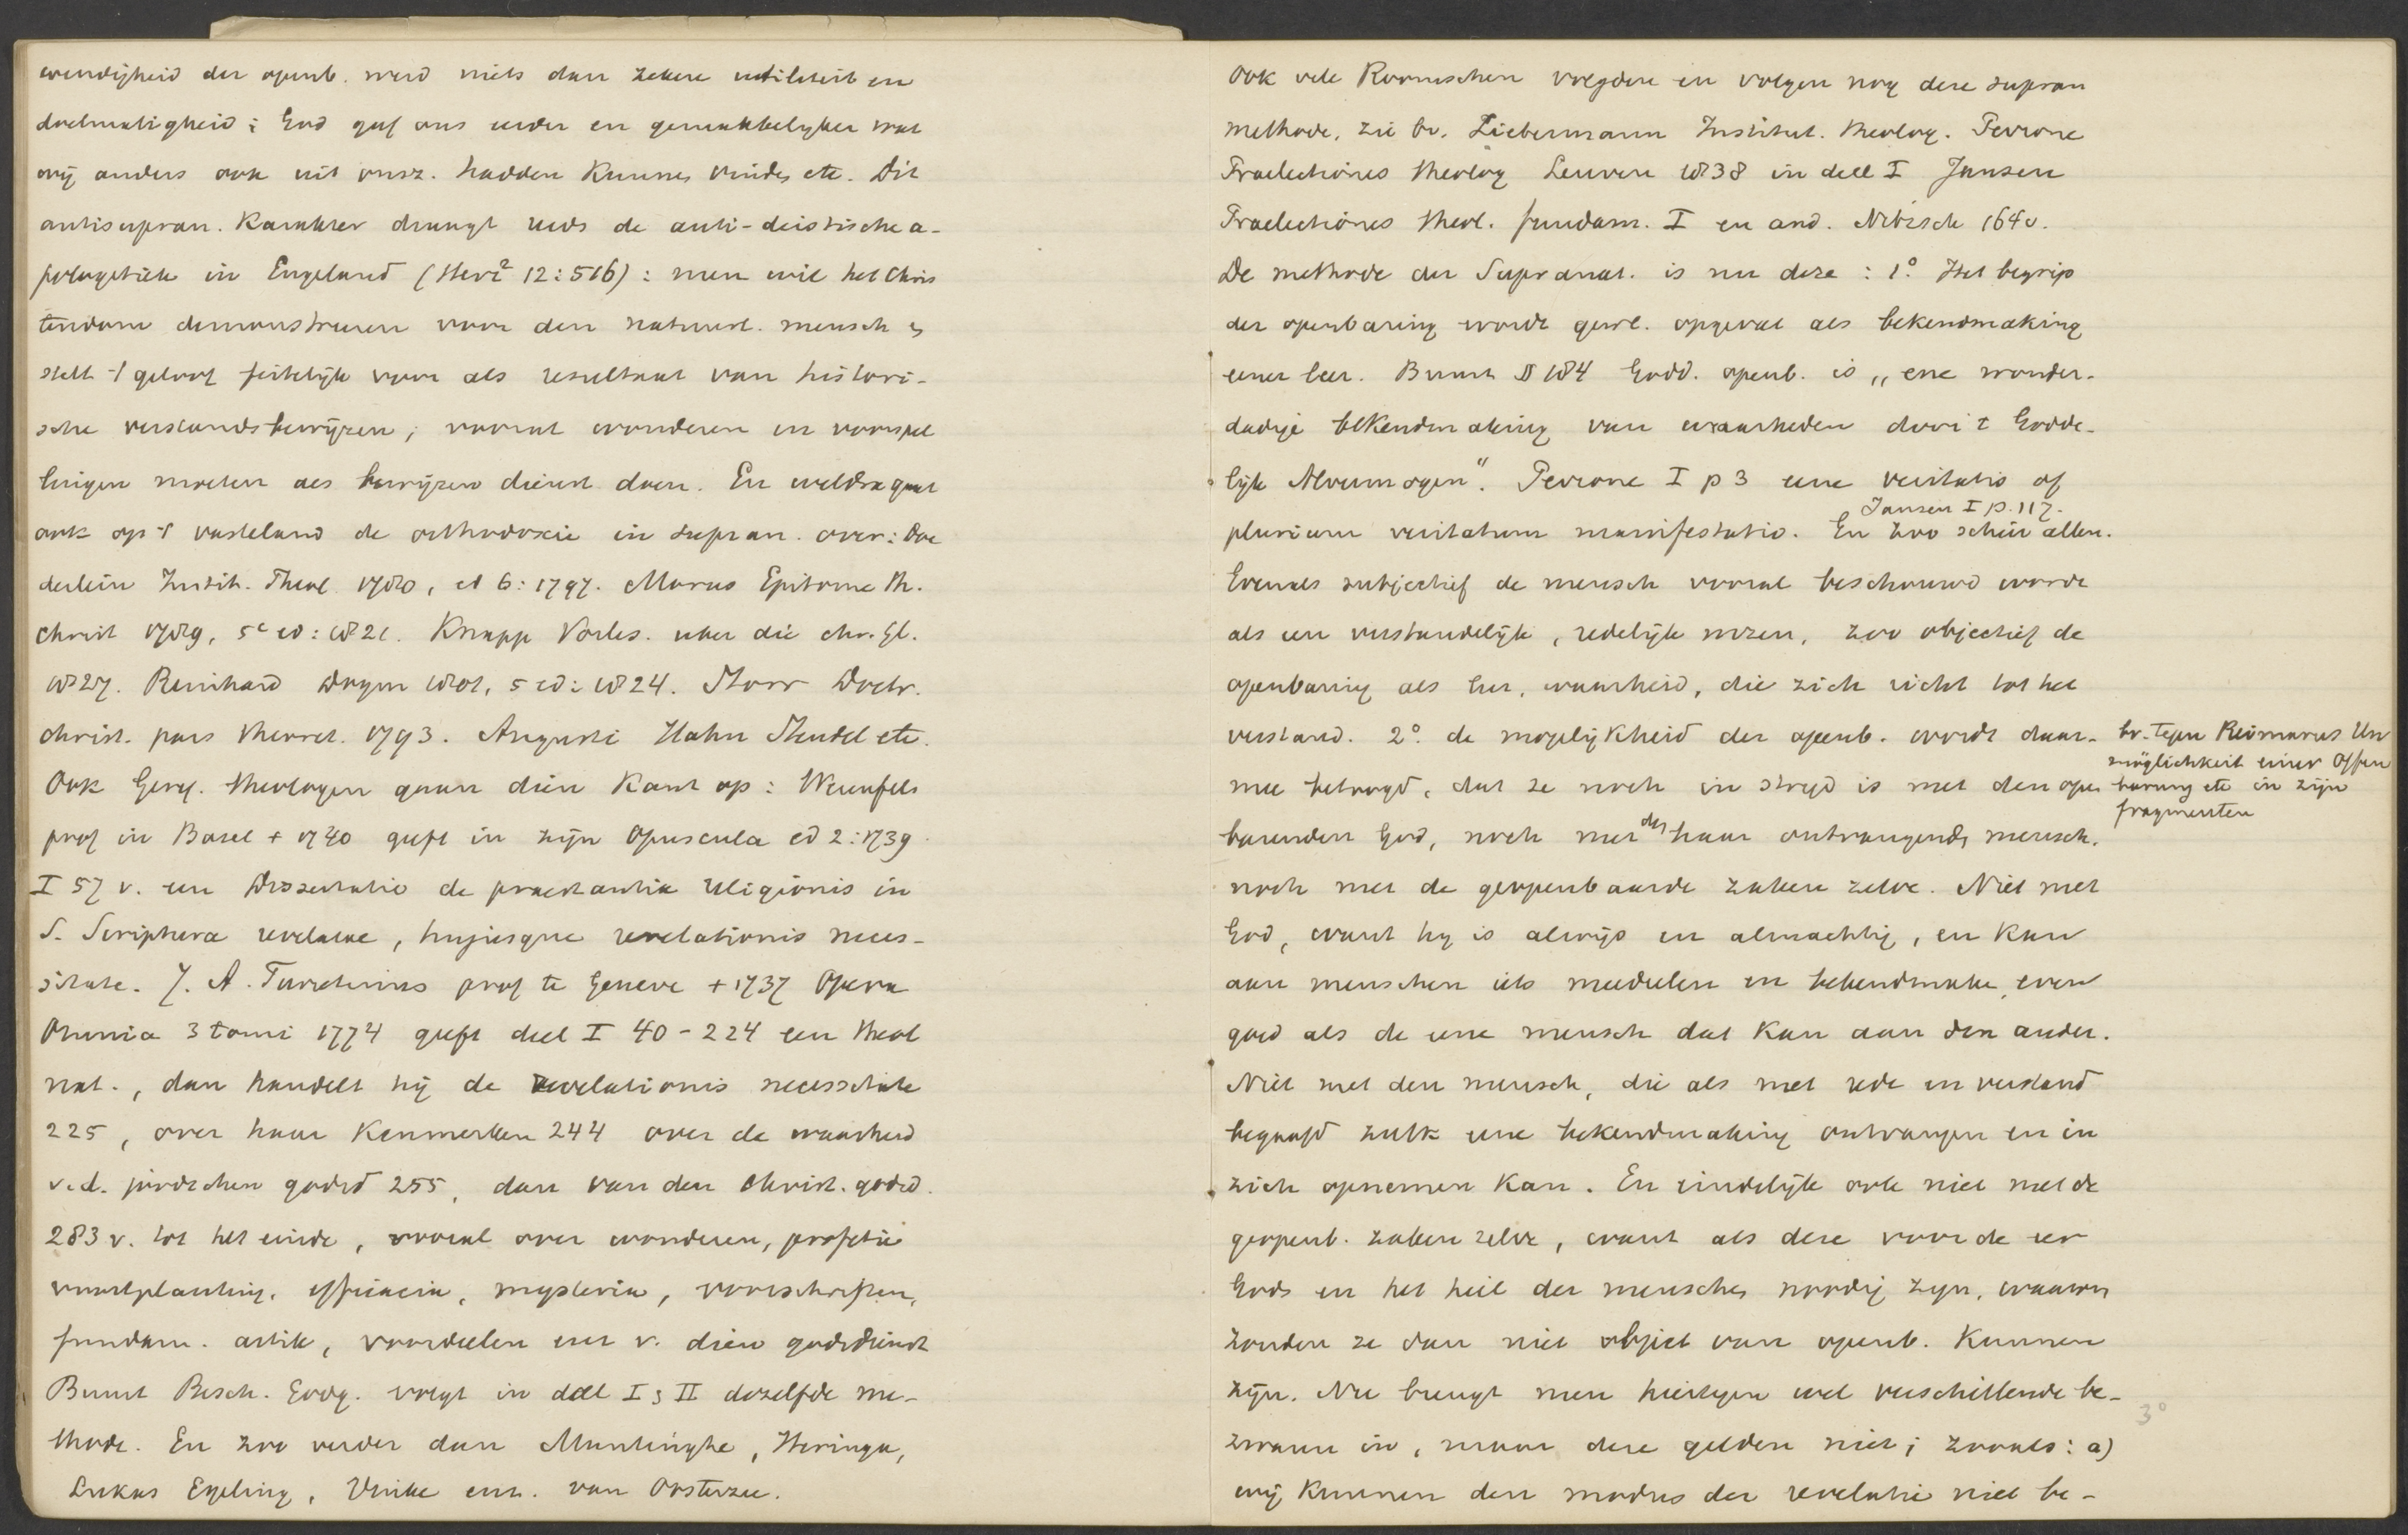 wendigheid der openb. werd niets dan zekere utiliteit en
doelmatigheid; God gaf ons eerder en gemakkelijker wat
wij anders ook uit onsz. hadden kunnen vinden etc. Dit
antisupran. karakter draagt reeds de anti-deistische a-
pologetiek in Engeland (Herz² 12:516): men wil het Chris
tendom demonstreeren voor den natuurl. mensch en
stelt 't geloof feitelijk voor als resultaat van histori-
sche verstandsbewijzen; vooral wonderen en voorspel
lingen moeten als bewijzen dienst doen. En weldra gaat
ook op 't vasteland de orthodoxie in supran. over: Doe
derlein Instit. Theol. 1780, ed 6: 1797. Morus Epitome th.
christ 1789, 5e ed: 1821. Knapp Vorles. uber die chr. Gl.
1827. Reinhard Dogm 1801, 5 ed: 1824. Storr Doctr.
christ. pars theoret. 1793. Augusti Hahn Steudel etc.
Ook Geref. theologen gaan dien kant op: Werenfels
prof in Basel + 1740 geeft in zijn Opuscula ed 2: 1739
I 57 v. een Dissertatio de praestantia religionis in
S. Scriptura revelatae, hujusque revelationis neces-
sitate. J. A. Turretinus prof te Geneve + 1737 Opera
Omnia 3 tomi 1774 geeft deel I 40-224 een theol
nat., dan handelt hij de revelationis necessitate
225, over haar kenmerken 244 over de waarheid
v. d. joodschen godsd 255, dan van den christ. godsd.
283 v. tot het einde, vooral over wonderen, profetie
voortplanting, efficacia, mysteria, voorschriften,
fundam. artik, voordeelen enz v. dien godsdienst
Bunnt Besch. Godg. volgt in deel I en II dezelfde me-
thode. En zoo verder dan Muntinghe, Heringa,
Lukas Egeling, Vinke enz. van Oosterzee.
Ook vele Roomschen volgden en volgen nog deze supran
methode, zie bv. Liebermann Institut. theolog. Perrone
Praelectiones theolog Leuven 1838 in deel I Jansen
Praelectiones theol. fundam. I en and. Nitzsch 164v.
De methode der Supranat. is nu deze: 1° Het begrip
der openbaring wordt gewl. opgevat als bekendmaking
eener leer. Bunnt § 184 Godd. openb. is „eene wonder-
dadige bekendmaking van waarheden door 't Godde-
lijk Alvermogen". Perrone I p 3 eene veritatis of
Jansen I p. 117.
plurium veritatum manifestatio. En zoo schier allen.
Evenals subjectief de mensch vooral beschouwd wordt
als een verstandelijk, redelijk wezen, zoo objectief de
openbaring als leer, waarheid, die zich richt tot het
verstand. 2° de mogelijkheid der openb. wordt daar-
mee betoogd, dat ze noch in strijd is met den open
barenden God, noch met den haar ontvangenden mensch,
noch met de geopenbaarde zaken zelve. Niet met
God, want hij is alwijs en almachtig, en kan
aan menschen iets meedeelen en bekendmaken, even
goed als de eene mensch dat kan aan den ander.
Niet met den mensch, die als met rede en verstand
begaafd zulk eene bekendmaking ontvangen en in
zich opnemen kan. En eindelijk ook niet met de
geopenb. zaken zelve, want als deze voor de eer
Gods en het heil der menschen noodig zijn, waarom
zouden ze dan niet object van openb. kunnen
zijn. Nu brengt men hiertegen wel verschillende be-
zwaren in, maar deze gelden niet; zooals: a)
wij kunnen den modus der revelatie niet be-
bv. tegen Reimarus Un
möglichkeit einer Offen
barung etc in zijn
fragmenten
3°